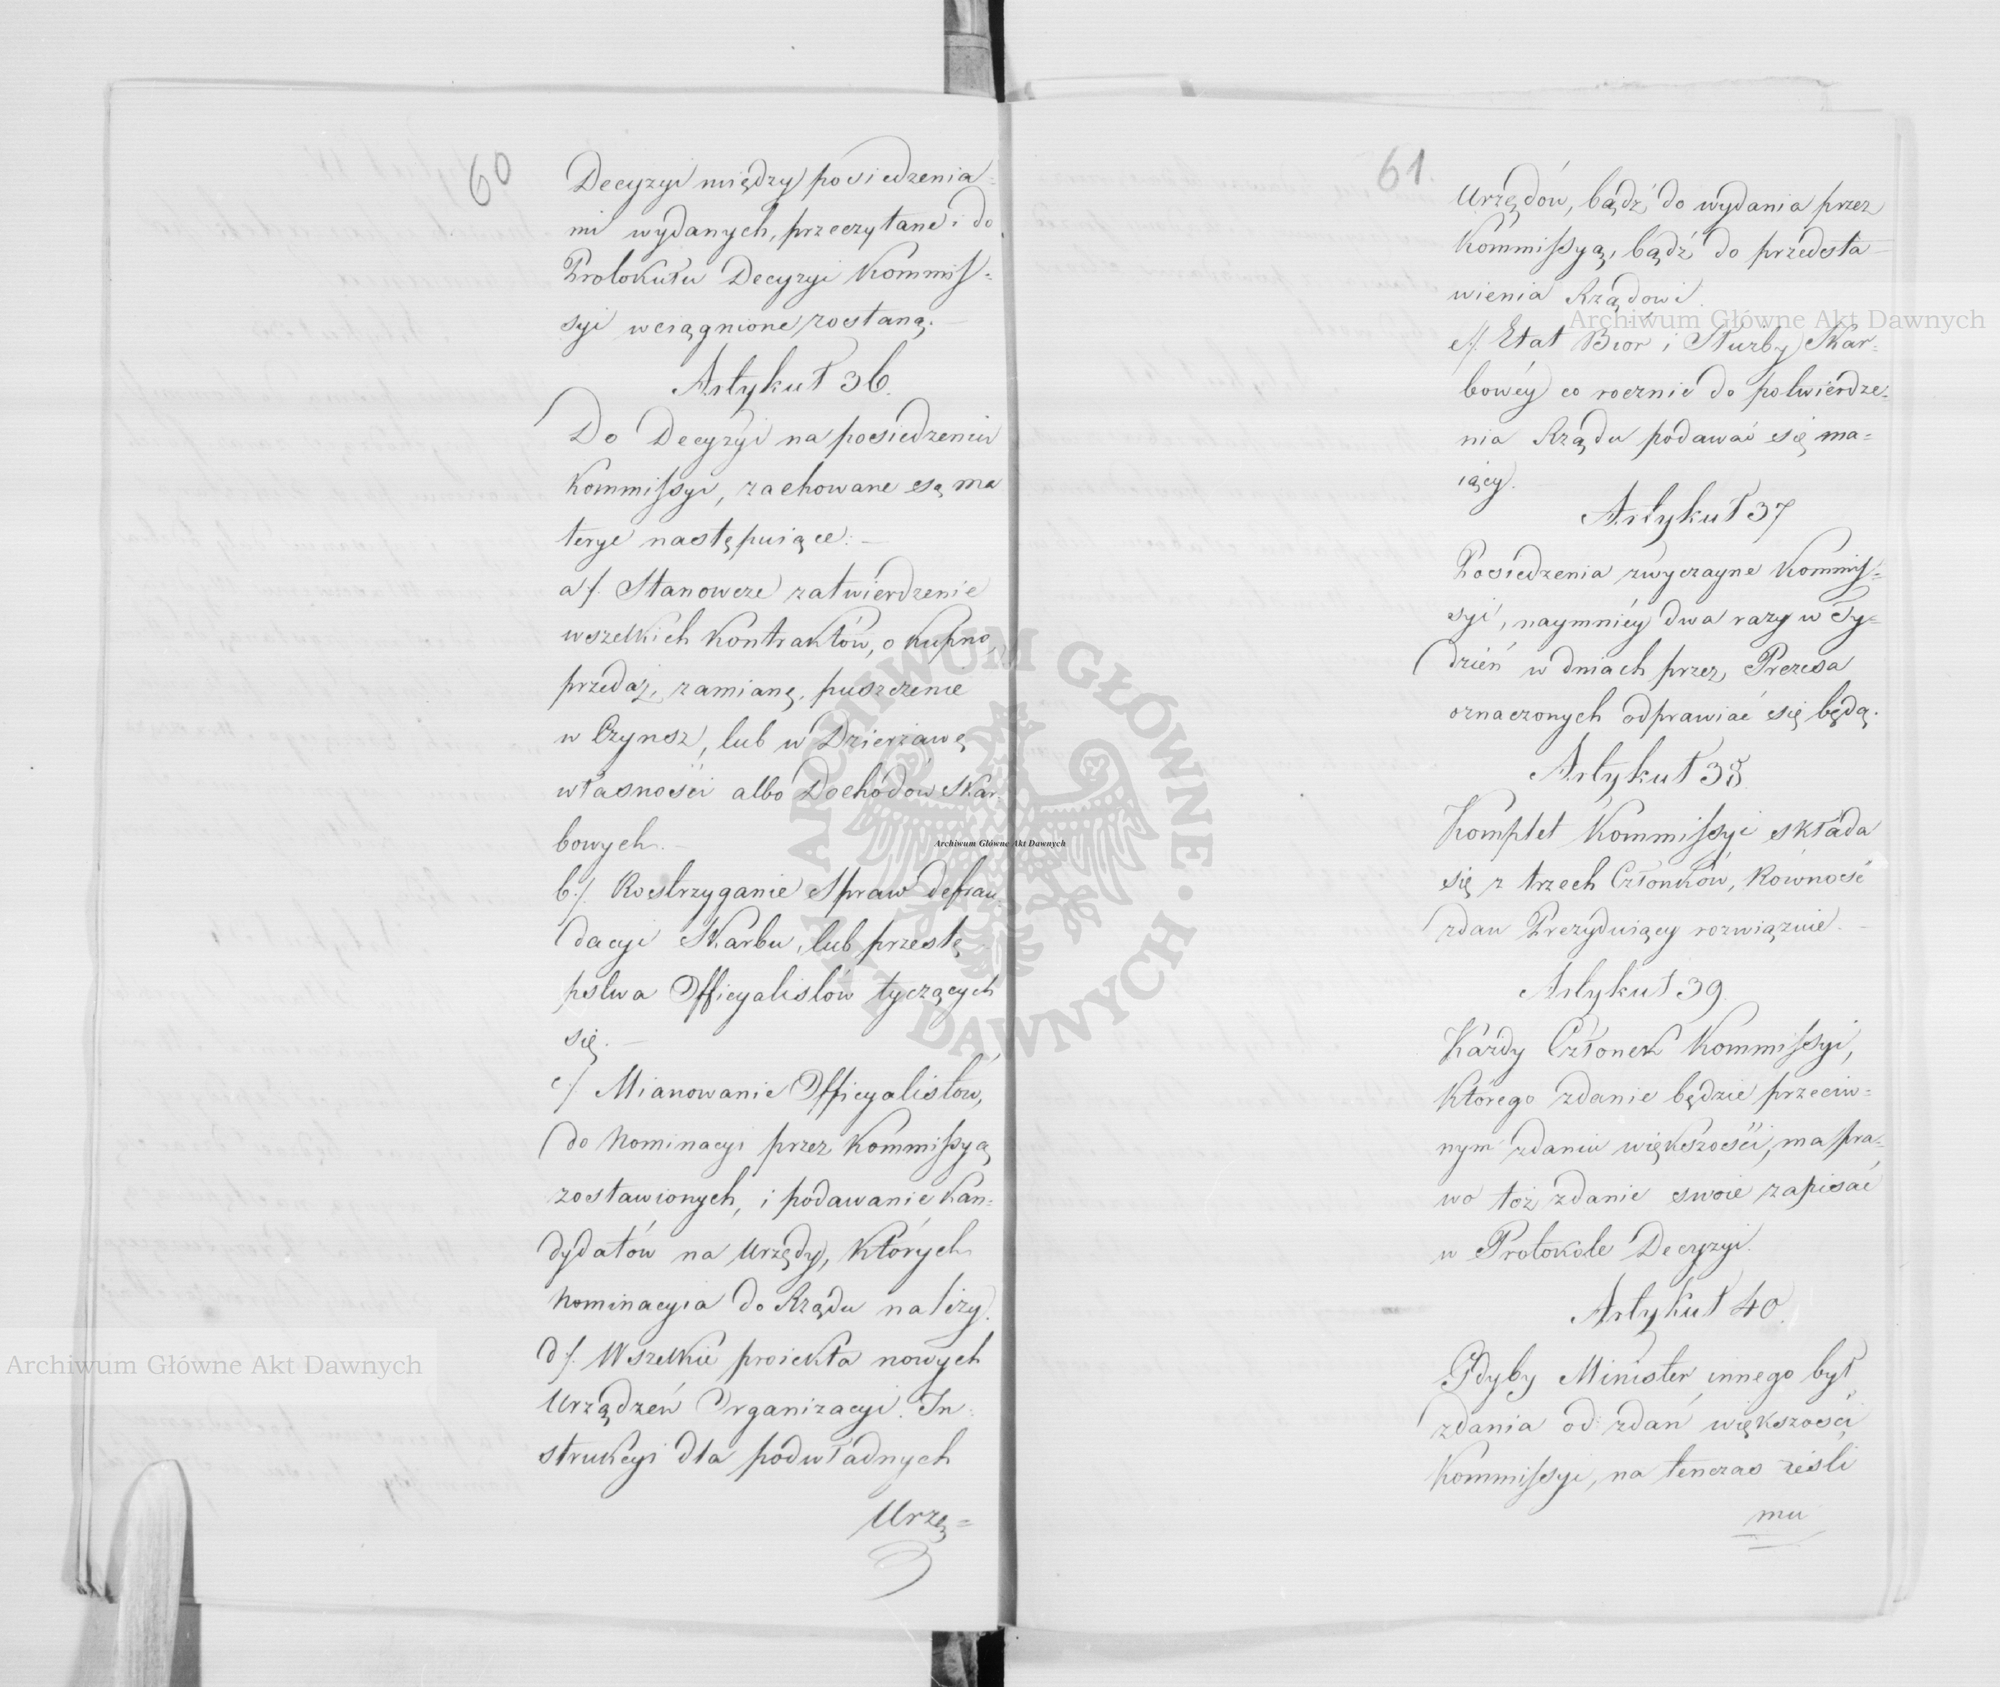 60
Decyzyi między posiedzenia=
mi wydanych, przeczytane i do
Protokułu Decyzyi Kommis=
syi wciągnione zostaną. —
Artykuł 36.
Do Decyzyi na posiedzeniu
Kommissyi, zachowane są ma
terye następuiące: —
a/. Stanowcze zatwierdzenie
wszelkich Kontraktów, o kupno,
przedaż, zamianę, puszczenie
w Czynsz, lub w Dzierżawę
własności albo Dochodów Skar=
bowych. —
b./. Rostrzyganie Spraw defrau=
dacyi Skarbu, lub przestę
pstwa Officyalistów tyczących
się. —
c./ Mianowanie Officyalistów,
do Nominacyi przez Kommissyą
zostawionych, i podawanie Kan=
dydatów na Urzędy, których
Nominacyia do Rządu należy.
d/. Wszelkie proiekta nowych
Urządzeń Organizacyi. In=
strukcyi dla podwładnych
Urzę=
61.
Urzędów, bądź do wydania przez
Kommissyą, bądź do przedsta—
wienia Rządowi.
e/. Etat Biór i Służby Skar=
bowéy co rocznie do potwierdze=
nia Rządu podawać się ma=
iący.
Artykuł 37
Posiedzenia zwyczayne Kommis=
syi, naymniéy dwa razy w Ty=
dzień w dniach przez Prezesa
oznaczonych odprawiać się będą.
Artykuł 38.
Komplet Kommissyi składa
się z trzech Członków, Równość
zdań Prezyduiący rozwiązuie. —
Artykuł 39.
Każdy Członek Kommissyi,
którego zdanie będzie przeciw=
nym zdaniu większości, ma pra=
wo toż zdanie swoie zapisać
w Protokole Decyzyi.
Artykuł 40.
Gdyby Minister innego był
zdania od zdań większości
Kommissyi, na tenczas ieśli
mu
Archiwum Główne Akt Dawnych
Archiwum Główne Akt Dawnych
Archiwum Główne Akt Dawnych
ARCHIWUM GŁÓWNE AKT DAWNYCH